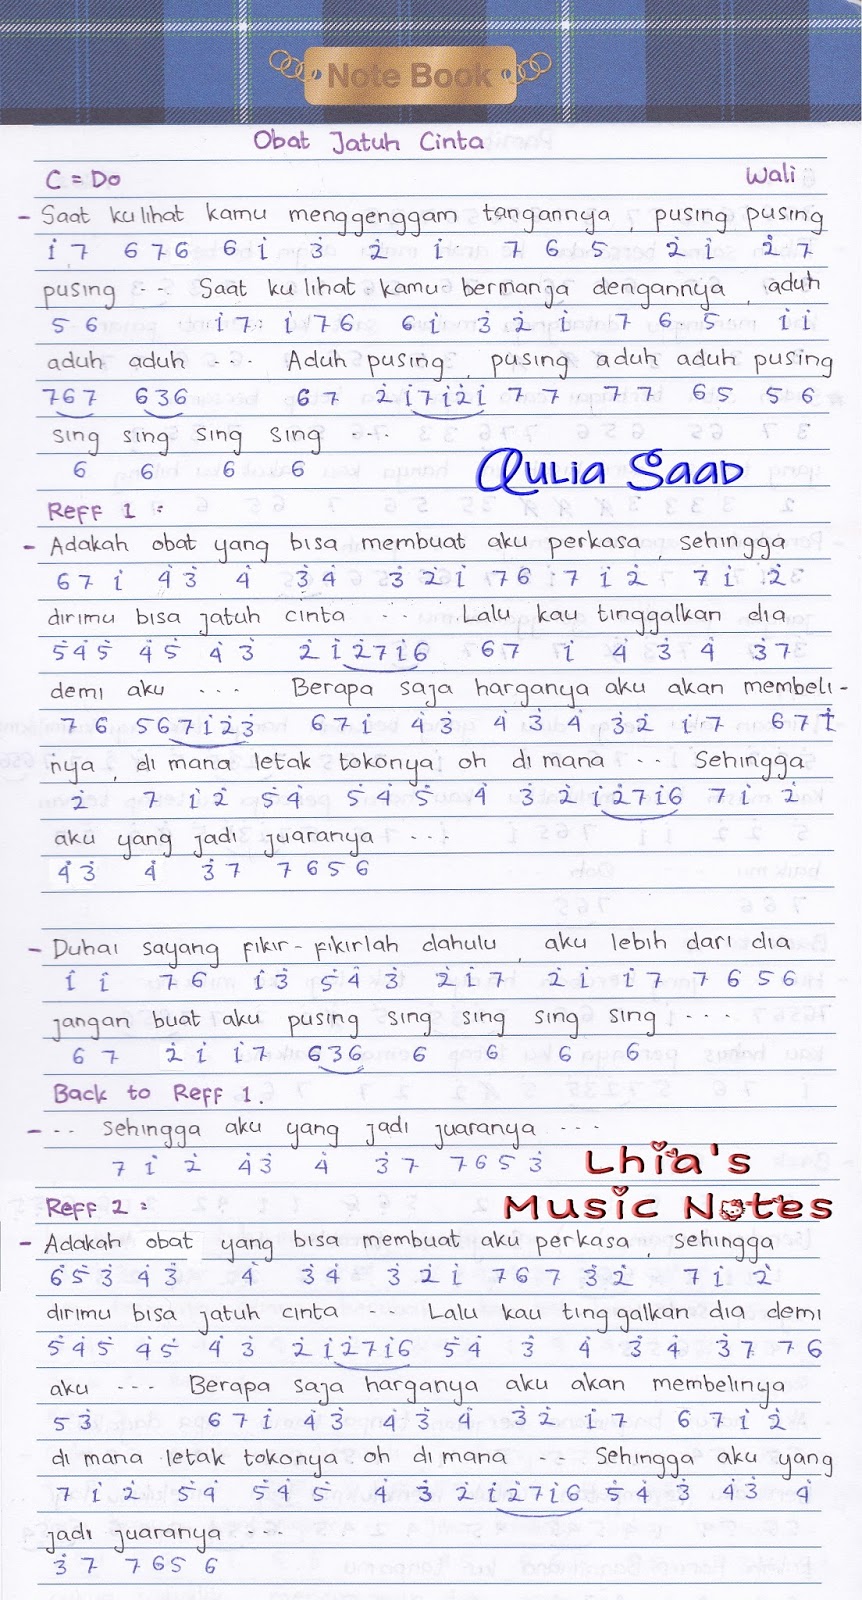 Note Book
Obat Jatuh Cinta
C = Do Wali
- Saat ku lihat kamu menggenggam tangannya, pusing pusing
i̇ 7 6 7 6 6 i̇ 3̇ 2̇ i̇ 7 6 5 2̇ i̇ 2̇ 7
pusing ... Saat ku lihat kamu bermanja dengannya, aduh
5 6 i̇ 7 i̇ 7 6 6 i̇ 3̇ 2̇ i̇ 7 6 5 i̇ i̇
aduh aduh ... Aduh pusing, pusing aduh aduh pusing
7 6 7 6 3 6 6 7 2̇ i̇ 7 i̇ 2̇ i̇ 7 7 7 7 6 5 5 6
sing sing sing sing ...
6 6 6 6
Qulia Saad
Reff 1 :
- Adakah obat yang bisa membuat aku perkasa, sehingga
6 7 i̇ 4̇ 3̇ 4̇ 3̇ 4̇ 3̇ 2̇ i̇ 7 6 i̇ 7 i̇ 2̇ 7 i̇ 2̇
dirimu bisa jatuh cinta ... Lalu kau tinggalkan dia
5̇ 4̇ 5̇ 4̇ 5̇ 4̇ 3̇ 2̇ i̇ 2̇ 7 i̇ 6 6 7 i̇ 4̇ 3̇ 4̇ 3̇ 7
demi aku ... Berapa saja harganya aku akan membeli-
7 6 5 6 7 i̇ 2̇ 3̇ 6 7 i̇ 4̇ 3̇ 4̇ 3̇ 4̇ 3̇ 2̇ i̇ 7 6 7 i̇
nya, di mana letak tokonya oh di mana ... Sehingga
2̇ 7 i̇ 2̇ 5̇ 4̇ 5̇ 4̇ 5̇ 4̇ 3̇ 2̇ i̇ 2̇ 7 i̇ 6 7 i̇ 2̇
aku yang jadi juaranya ...
4̇ 3̇ 4̇ 3̇ 7 7 6 5 6
- Duhai sayang fikir-fikirlah dahulu, aku lebih dari dia
i̇ i̇ 7 6 i̇ 3̇ 5̇ 4̇ 3̇ 2̇ i̇ 7 2̇ i̇ i̇ 7 7 6 5 6
jangan buat aku pusing sing sing sing sing ...
6 7 2̇ i̇ i̇ 7 6 3 6 6 6 6 6
Back to Reff 1.
- .. Sehingga aku yang jadi juaranya ...
7 i̇ 2̇ 4̇ 3̇ 4̇ 3̇ 7 7 6 5 3̇
Lhia's
Music Notes
Reff 2 :
- Adakah obat yang bisa membuat aku perkasa, sehingga
6̇ 5̇ 3̇ 4̇ 3̇ 4̇ 3̇ 4̇ 3̇ 2̇ i̇ 7 6 7 3̇ 2̇ 7 i̇ 2̇
dirimu bisa jatuh cinta ... Lalu kau tinggalkan dia demi
5̇ 4̇ 5̇ 4̇ 5̇ 4̇ 3̇ 2̇ i̇ 2̇ 7 i̇ 6 5̇ 4̇ 3̇ 4̇ 3̇ 4̇ 3̇ 7 7 6
aku ... Berapa saja harganya aku akan membelinya
5 3̇ 6 7 i̇ 4̇ 3̇ 4̇ 3̇ 4̇ 3̇ 2̇ i̇ 7 6 7 i̇ 2̇
di mana letak tokonya oh di mana ... Sehingga aku yang
7 i̇ 2̇ 5̇ 4̇ 5̇ 4̇ 5̇ 4̇ 3̇ 2̇ i̇ 2̇ 7 i̇ 6 5̇ 4̇ 3̇ 4̇ 3̇ 4̇
jadi juaranya ...
3̇ 7 7 6 5 6